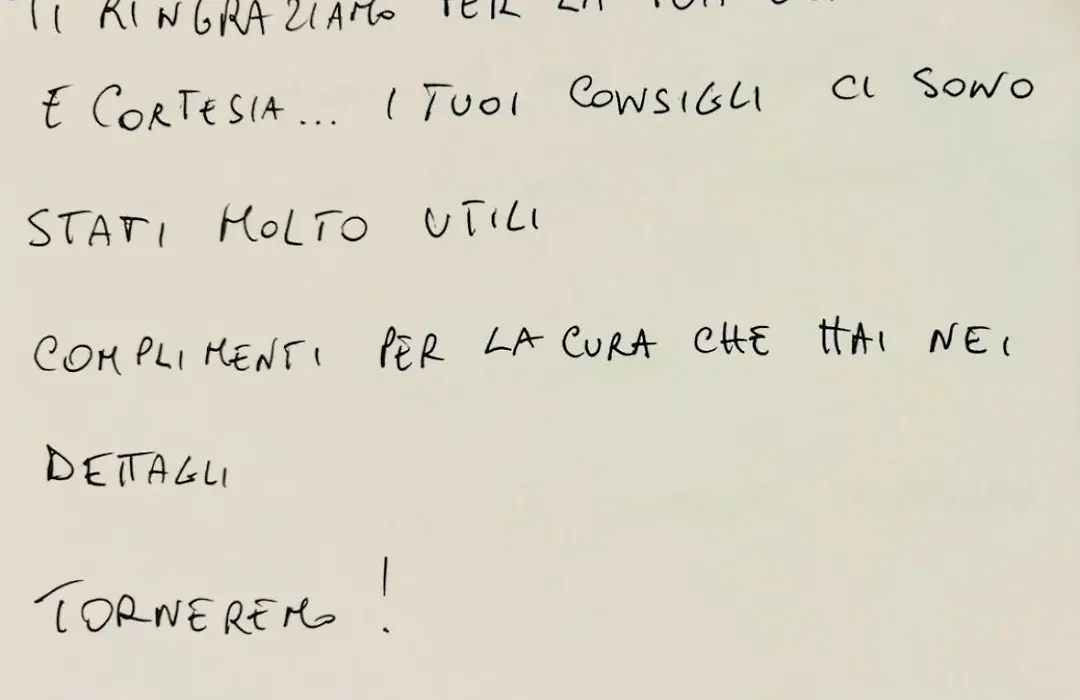 TI RINGRAZIAMO PER LA TUA
E CORTESIA... I TUOI CONSIGLI CI SONO
STATI MOLTO UTILI
COMPLIMENTI PER LA CURA CHE HAI NEI
DETTAGLI
TORNEREMO!